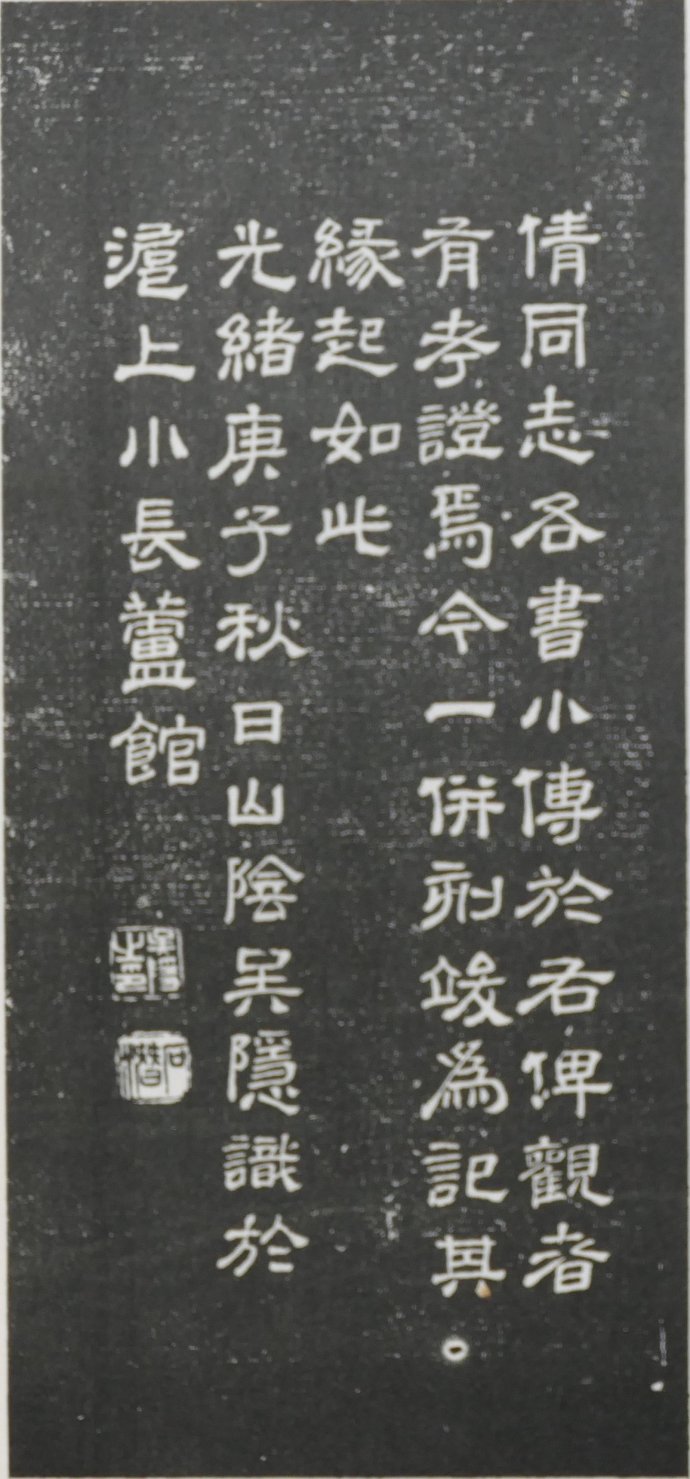 倩同志各書小傳於右俾觀者
有考證焉今一併刻竣為記其
緣起如此
光緒庚子秋日山陰吳隱識於
滬上小長蘆館
石潛